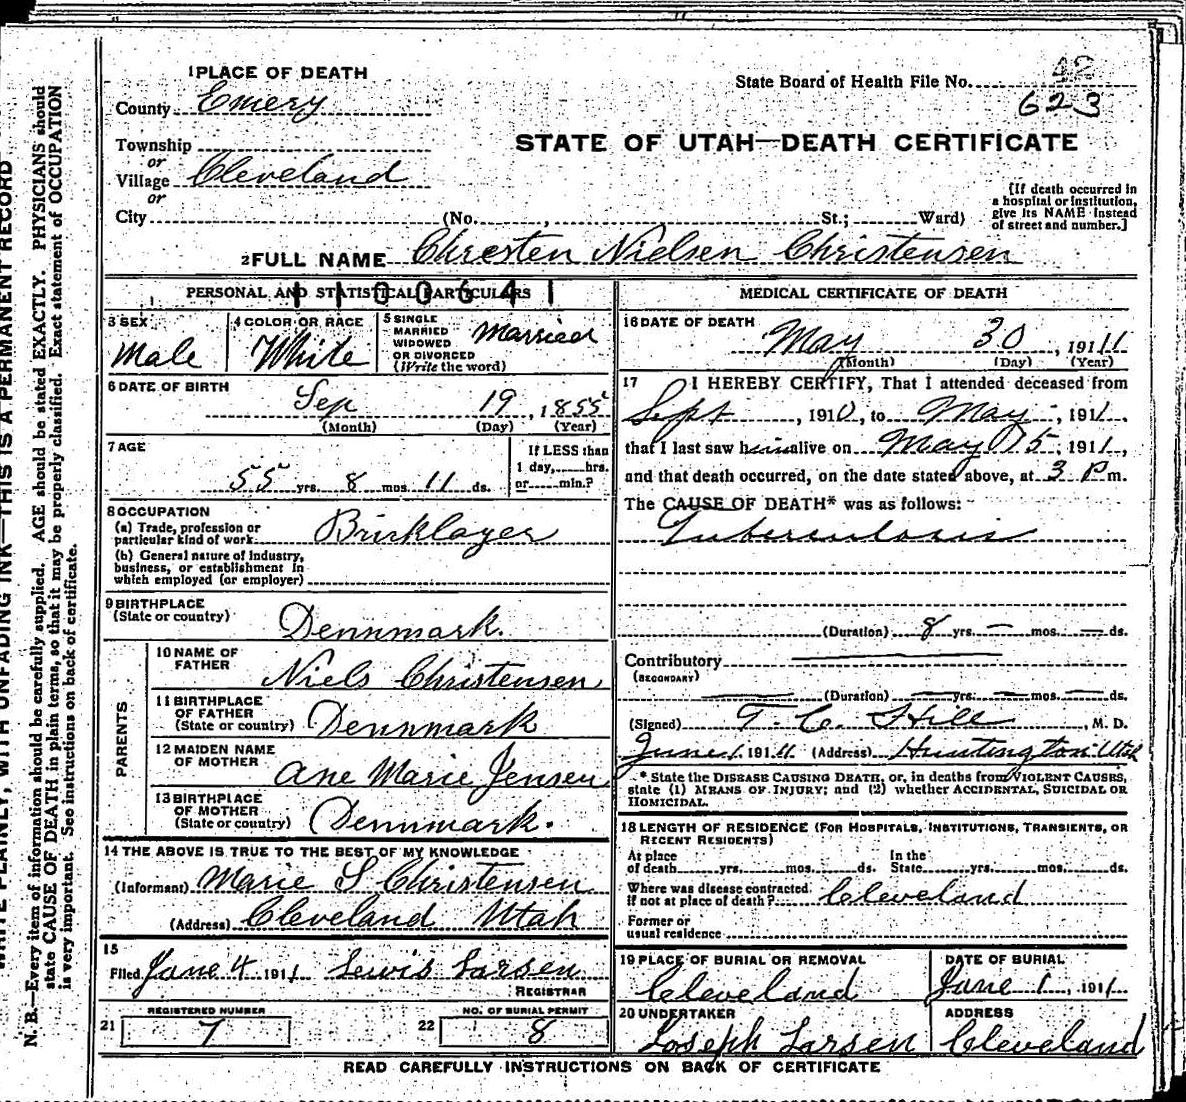 1 PLACE OF DEATH
County Emery
State Board of Health File No. 42
623
Township
or
Village Cleveland
or
City (No. , St.; Ward)
STATE OF UTAH—DEATH CERTIFICATE
[If death occurred in
a hospital or institution,
give its NAME instead
of street and number.]
2 FULL NAME Chresten Nielsen Christensen
PERSONAL AND STATISTICAL PARTICULARS
1100641
3 SEX
Male
4 COLOR OR RACE
White
5 SINGLE
MARRIED
WIDOWED
OR DIVORCED
(Write the word)
Married
6 DATE OF BIRTH
Sep 19, 1855
(Month) (Day) (Year)
7 AGE
55 yrs. 8 mos. 11 ds.
If LESS than
1 day, hrs.
or min.?
8 OCCUPATION
(a) Trade, profession or
particular kind of work
Bricklayer
(b) General nature of industry,
business, or establishment in
which employed (or employer)
9 BIRTHPLACE
(State or country)
Dennmark.
PARENTS
10 NAME OF
FATHER
Niels Christensen
11 BIRTHPLACE
OF FATHER
(State or country)
Dennmark
12 MAIDEN NAME
OF MOTHER
Ane Marie Jensen
13 BIRTHPLACE
OF MOTHER
(State or country)
Dennmark.
14 THE ABOVE IS TRUE TO THE BEST OF MY KNOWLEDGE
(Informant) Marie S Christensen
(Address) Cleveland Utah
15
Filed June 4 1911 Lewis Larsen
REGISTRAR
REGISTERED NUMBER
21 7
NO. OF BURIAL PERMIT
22 8
MEDICAL CERTIFICATE OF DEATH
16 DATE OF DEATH
May 30, 1911
(Month) (Day) (Year)
17 I HEREBY CERTIFY, That I attended deceased from
Sept, 1910, to May, 1911,
that I last saw him alive on May 15, 1911,
and that death occurred, on the date stated above, at 3 P m.
The CAUSE OF DEATH* was as follows:
Tuberculosis
(Duration) 8 yrs. — mos. — ds.
Contributory
(SECONDARY)
(Duration) — yrs. — mos. — ds.
(Signed) T. C. Hill, M. D.
June 1, 1911 (Address) Huntington Utah
* State the DISEASE CAUSING DEATH, or, in deaths from VIOLENT CAUSES,
state (1) MEANS OF INJURY; and (2) whether ACCIDENTAL, SUICIDAL OR
HOMICIDAL.
18 LENGTH OF RESIDENCE (FOR HOSPITALS, INSTITUTIONS, TRANSIENTS, OR
RECENT RESIDENTS)
At place
of death yrs. mos. ds.
In the
State yrs. mos. ds.
Where was disease contracted
if not at place of death? Cleveland
Former or
usual residence
19 PLACE OF BURIAL OR REMOVAL
Cleveland
DATE OF BURIAL
June 1, 1911
20 UNDERTAKER
Joseph Larsen
ADDRESS
Cleveland
READ CAREFULLY INSTRUCTIONS ON BACK OF CERTIFICATE
WRITE PLAINLY, WITH UNFADING INK—THIS IS A PERMANENT RECORD
N. B.—Every item of information should be carefully supplied. AGE should be stated EXACTLY. PHYSICIANS should
state CAUSE OF DEATH in plain terms, so that it may be properly classified. Exact statement of OCCUPATION
is very important. See instructions on back of certificate.